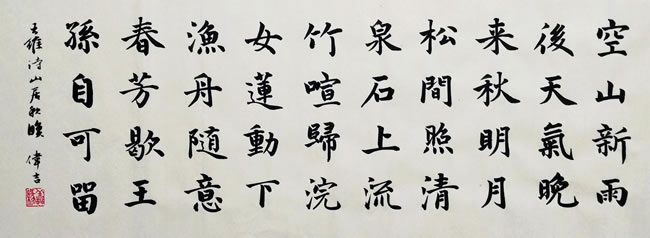 空山新雨
後天氣晚
来秋明月
松間照清
泉石上流
竹喧歸浣
女蓮動下
漁舟随意
春芳歇王
孫自可留
王維诗山居秋暝 偉吉